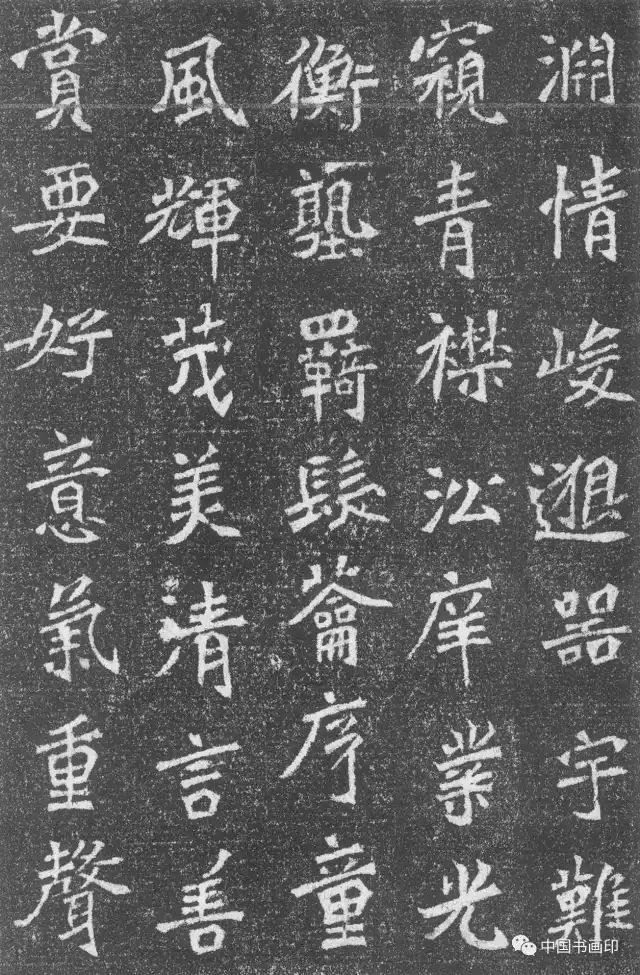 淵情峻邈器宇難
窺青襟㳂庠業光
衡塾羈髮蘥序童
風輝茂美清言善
賞要好意氣重聲
中国书画印